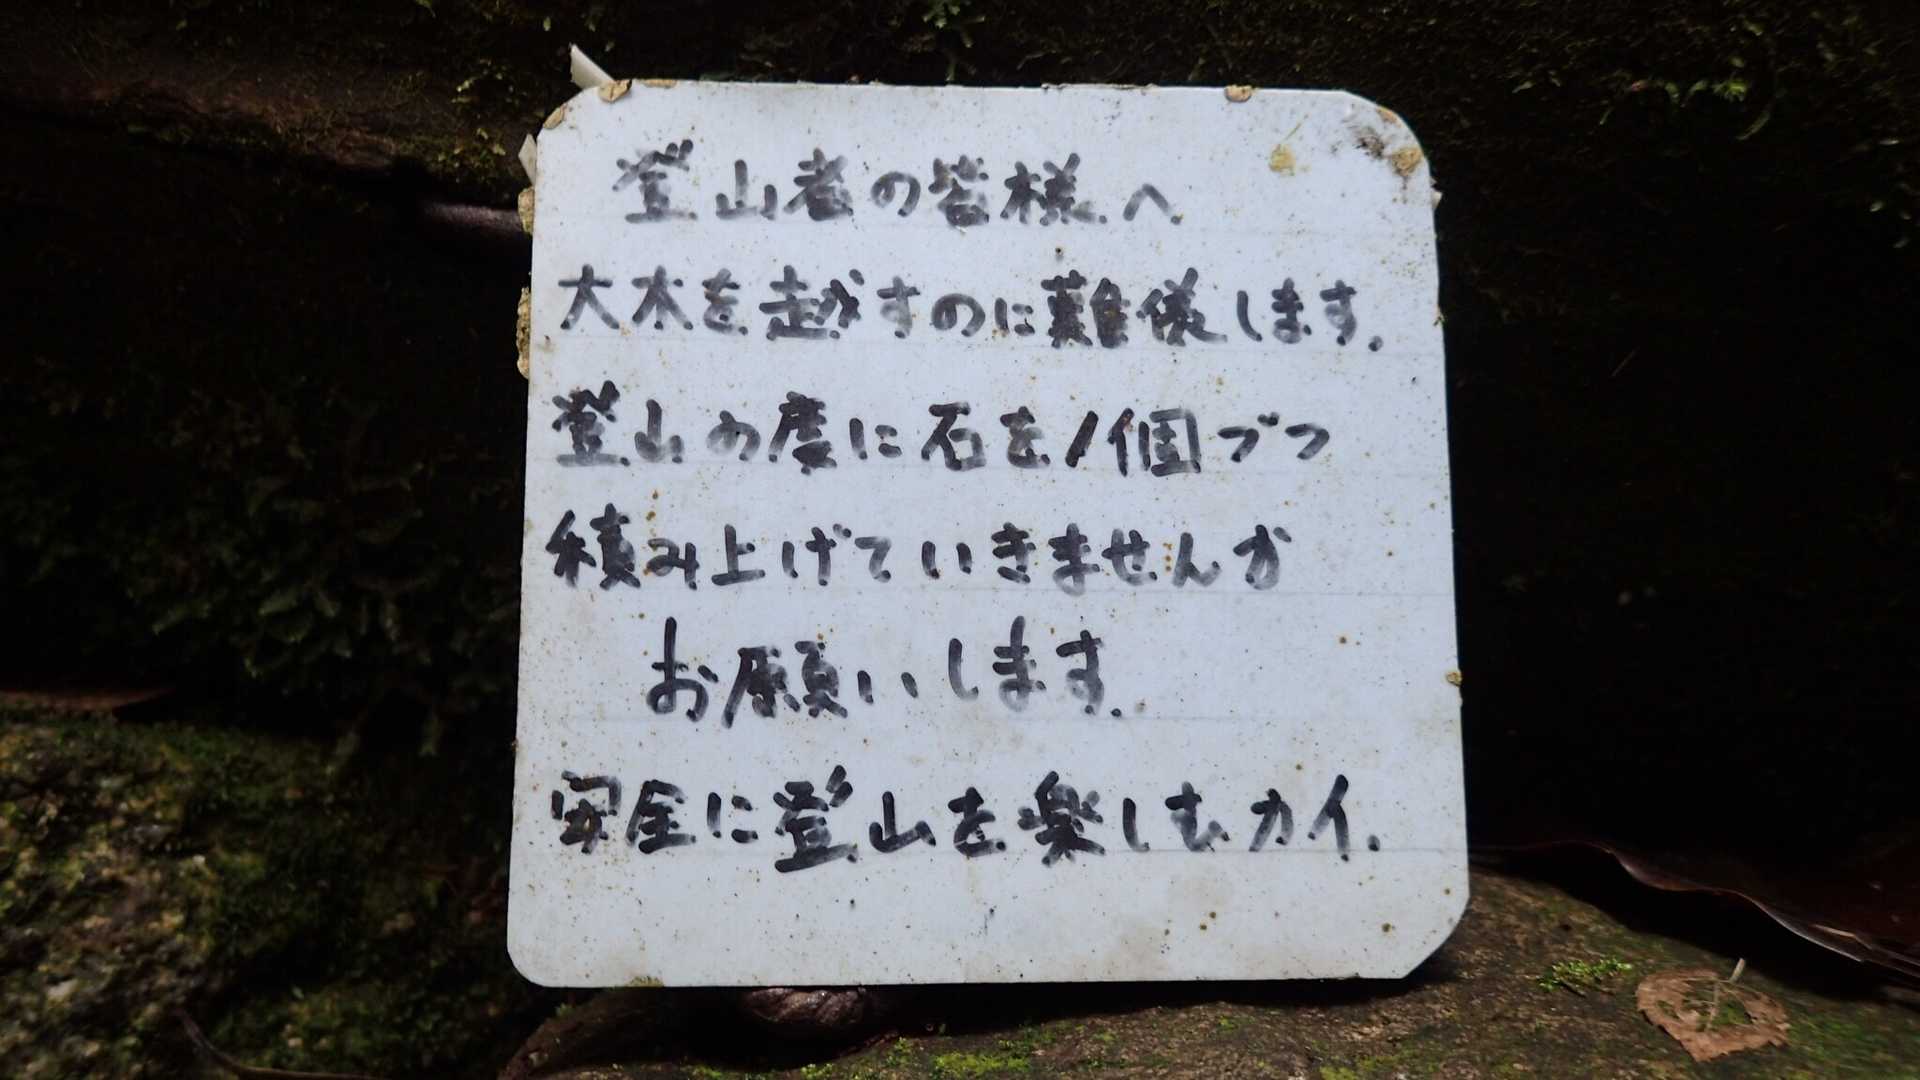 登山者の皆様へ
大木を越すのに難儀します.
登山の度に石を1個づつ
積み上げていきませんか
お願いします.
安全に登山を楽しむカイ.